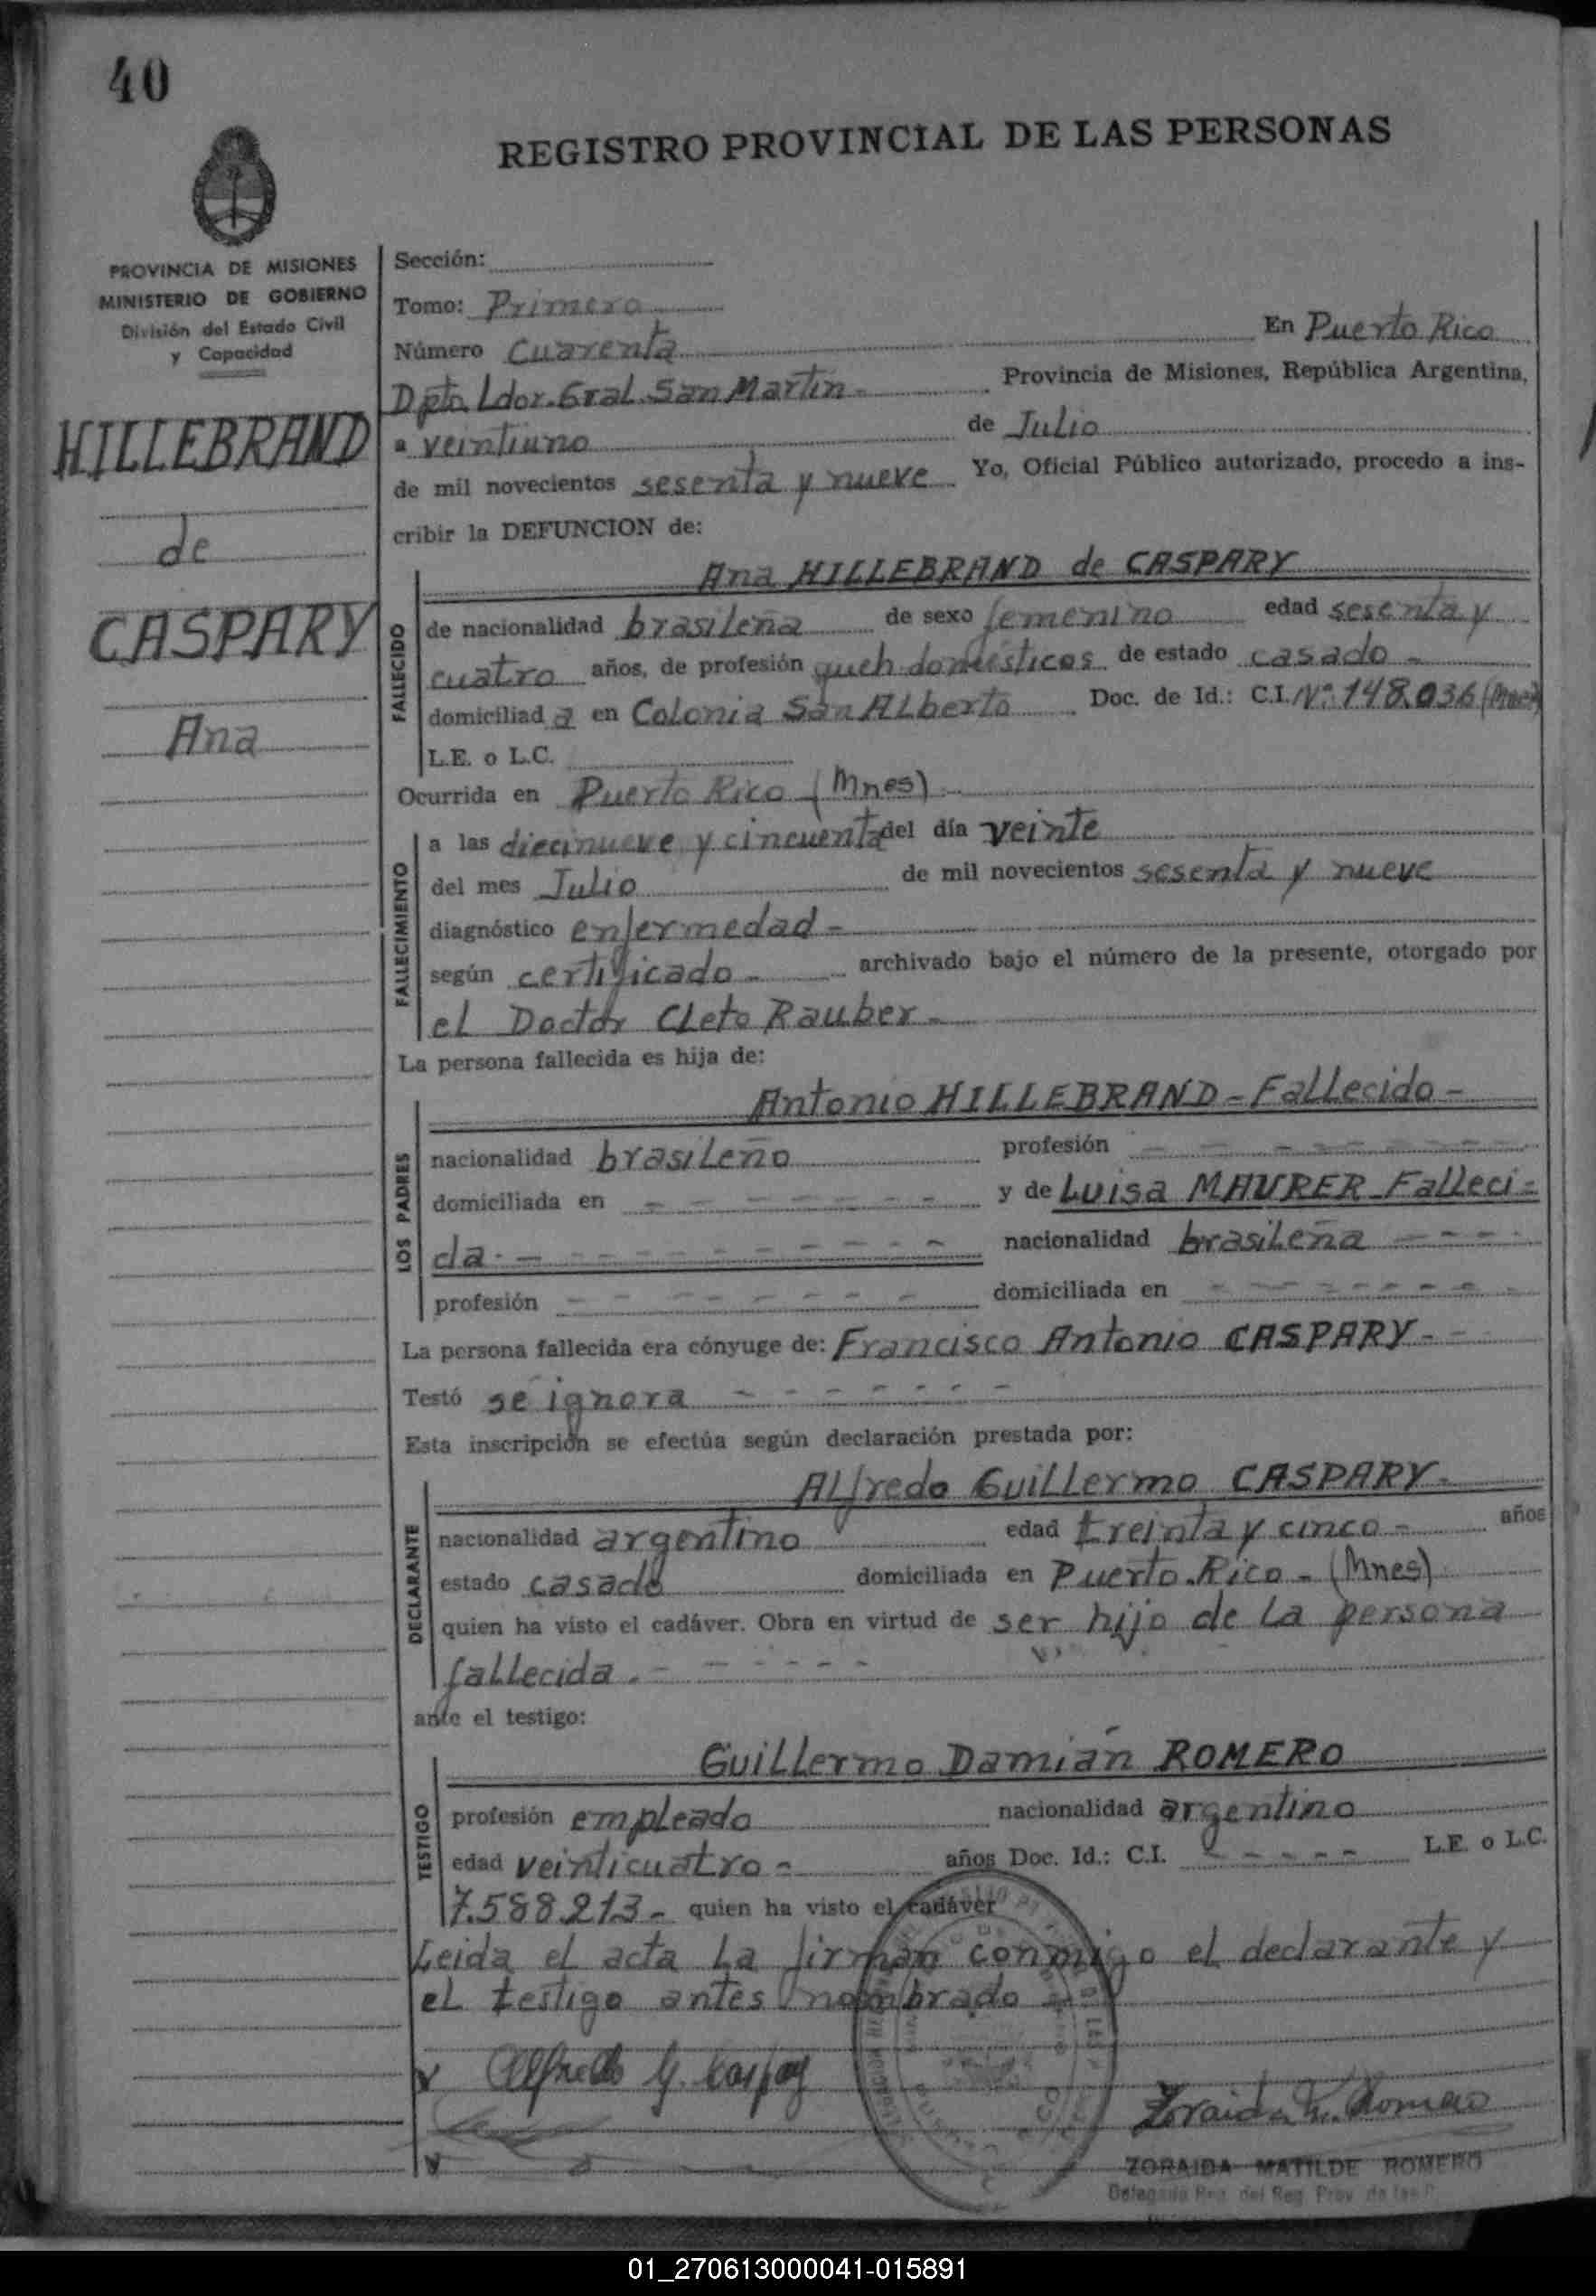 40
REGISTRO PROVINCIAL DE LAS PERSONAS
PROVINCIA DE MISIONES
MINISTERIO DE GOBIERNO
División del Estado Civil
y Capacidad
HILLEBRAND
de
CASPARY
Ana
Sección:
Tomo: Primero
Número Cuarenta En Puerto Rico
Dpto. Ldor. Gral. San Martín- Provincia de Misiones, República Argentina,
a veintiuno de Julio
de mil novecientos sesenta y nueve Yo, Oficial Público autorizado, procedo a ins-
cribir la DEFUNCION de:
Ana HILLEBRAND de CASPARY
FALLECIDO
de nacionalidad brasileña de sexo femenino edad sesenta y
cuatro años, de profesión queh. domésticos de estado casado -
domiciliad a en Colonia San Alberto Doc. de Id.: C.I. Nº 148.036
L.E. o L.C.
Ocurrida en Puerto Rico (Mnes) -
FALLECIMIENTO
a las diecinueve y cincuenta del día veinte
del mes Julio de mil novecientos sesenta y nueve
diagnóstico enfermedad -
según certificado - archivado bajo el número de la presente, otorgado por
el Doctor Cleto Rauber -
La persona fallecida es hija de:
Antonio HILLEBRAND - Fallecido -
LOS PADRES
nacionalidad brasileño profesión - - - - - - - -
domiciliada en - - - - - - - y de Luisa MAURER Falleci-
da - - - - - - - - - - nacionalidad brasileña - - - -
profesión - - - - - - - - domiciliada en - - - - - - - -
La persona fallecida era cónyuge de: Francisco Antonio CASPARY - - -
Testó se ignora - - - - - - -
Esta inscripción se efectúa según declaración prestada por:
Alfredo Guillermo CASPARY -
DECLARANTE
nacionalidad argentino edad treinta y cinco - años
estado casado domiciliada en Puerto Rico - (Mnes)
quien ha visto el cadáver. Obra en virtud de ser hijo de la persona
fallecida. - - - - - -
ante el testigo:
Guillermo Damián ROMERO
TESTIGO
profesión empleado nacionalidad argentino
edad veinticuatro - años Doc. Id.: C.I. - - - - - L.E. o L.C.
7.588.213 - quien ha visto el cadáver
Leida el acta la firman conmigo el declarante y
el testigo antes nombrado -
Alfredo G. Caspary
Zoraida M. Romero
ZORAIDA MATILDE ROMERO
01_270613000041-015891